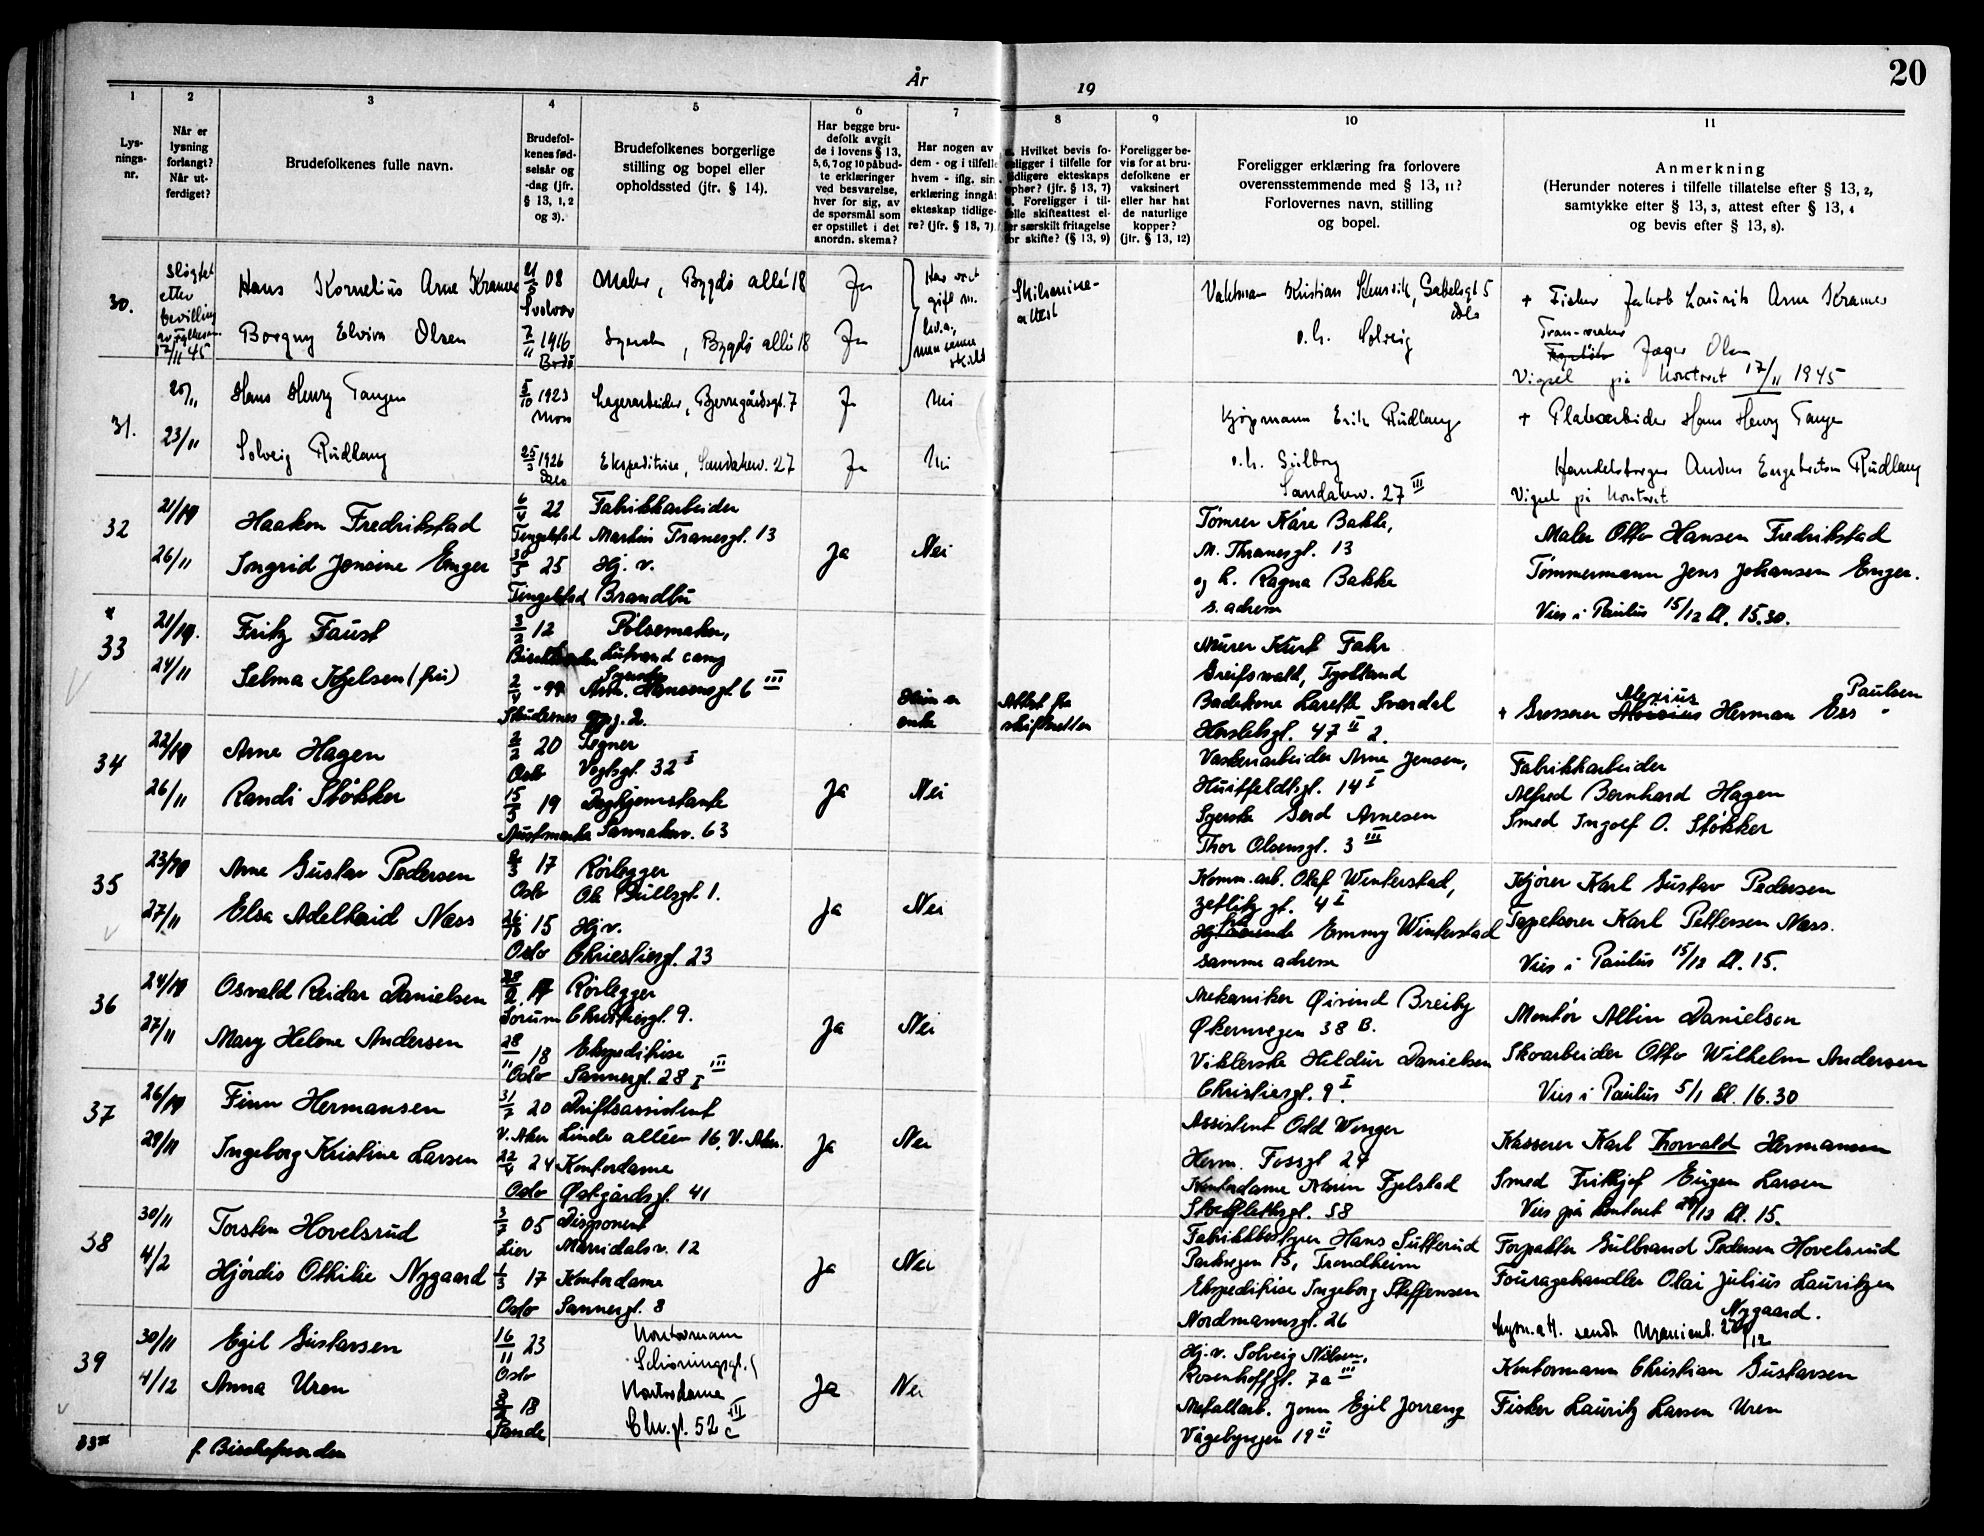 År
19
20
1
2
3
4
5
6
7
8
9
10
11
Lys-
nings-
nr.
Når er
lysning
forlangt?
Når ut-
ferdiget?
Brudefolkenes fulle navn.
Brudefol-
kenes fød-
selsår og
-dag (jfr.
§ 13, 1, 2
og 3).
Brudefolkenes borgerlige
stilling og bopel eller
opholdssted (jfr. § 14).
Har begge bru-
defolk avgit
de i lovens § 13,
5, 6, 7 og 10 påbud-
te erklæringer
ved besvarelse,
hver for sig, av
de spørsmål som
er opstillet i det
anordn. skema?
Har nogen av
dem - og i tilfelle
hvem - iflg. sin
erklæring inngå
ekteskap tidlige-
re? (jfr. § 13, 7).
Hvilket bevis fo-
religger i tilfelle for
tidligere ekteskaps
ophør? (jfr. § 13, 7)
Foreligger i til-
felle skifteattest el-
ler særskilt fritagelse
for skifte? (§ 13, 9)
Foreligger be-
vis for at bru-
defolkene er
vaksinert
eller har hat
de naturlige
kopper?
(jfr. § 13, 12)
Foreligger erklæring fra forlovere
overensstemmende med § 13, 11?
Forlovernes navn, stilling
og bopel.
Anmerkning
(Herunder noteres i tilfelle tillatelse efter § 13, 2,
samtykke efter § 13, 3, attest efter § 13, 4
og bevis efter § 13, 8).
30.
etter
bevilling
17/11 45
Hans Kornelius Arne Kramer
21/5 08
Svolvær
Maler, Bygdø allé 18
Ja
Har vært
gift m.
h.v.a.,
men
skilt
Skilsmisse-
attest
Vaktman Kristian Stensvik, Gabelsgt 5
Oslo
o.h. Solveig
+ Fisker Jakob Laurits Arne Kramer
Borgny Elvira Olsen
7/11 1916
Bodø
Syerske, Bygdø allé 18
Ja
Tran-
Jæger Olsen
Vigsel på kontoret 17/11 1945
31.
20/11
23/11
Hans Henry Tangen
5/10 1923
Moss
Lagerarbeider, Bjerregårdsgt. 7
Ja
Nei
Kjøpmann Erik Rudlang
o.h. Gulborg
Sandakerv. 27 III
+ Platearbeider Hans Henry Tange
Solveig Rudlang
25/3 1926
Oslo
Ekspeditrise, Sandakerv. 27
Ja
Nei
Handelsborger Anders Engebretsen Rudlang
Vigsel på kontoret
32
21/10
26/11
Haakon Fredrikstad
6/4 22
Tingelstad
Fabrikkarbeider
Martin Tranesgt. 13
Ingrid Jensine Enger
30/5 25
Tingelstad
Hj. v.
Brandbu
Ja
Nei
Tømrer Kåre Bakke,
M. Thranesgt. 13
og h. Ragna Bakke
s. adresse
Maler Otto Hansen Fredrikstad
Tømmermann Jens Johansen Enger.
Vies i Paulus 15/12 kl. 15.30.
*
33
21/10.
24/11
Fritz Faust
3/3 12
Pølsemaker,
Lutvand camp
Selma Kjelsen (fru)
2/4 -99
Skudesnes
Syerske
Arb. Hansensgt 6 III
oppg. 2.
Hun er
enke
Attest fra
skifteretten
Murer Kurt Fahr
Greifswald, Tyskland
Badekone Laretta Svardal
Herslebsgt. 47 II 2.
Alexius Paulsen
+ Grosserer Aloisius Herman Ess -
34
22/10
26/11
Arne Hagen
2/2 20
Oslo
Tegner
Vogtsgt. 32 I
Randi Støkker
15/5 19
Austmarka
Daghjemstante
Sannakerv. 63
Ja
Nei
Vaskeriarbeider Arne Jensen,
Huitfeldtsgt. 14 I
Syerske Gerd Arnesen
Thor Olsensgt. 3 III
Fabrikkarbeider
Alfred Bernhard Hagen
Smed Ingolf O. Støkker
35
23/10
27/11
Arne Gustav Pedersen
2/3 17
Oslo
Rørlegger
Ole Bullsgt 1.
Elsa Adelheid Næss
26/10 15
Oslo
Hj v.
Christiesgt. 23
Ja
Nei
Komm. arb. Olaf Winterstad,
Zetlitz gt. 4 I
Emmy Winterstad
samme adresse
Kjører Karl Gustav Pedersen
Tapetserer Karl Pettersen Næss.
Vies i Paulus 15/12 kl. 15.
36
24/10
27/11
Osvald Reidar Danielsen
28/2 17
Sorum
Rørlegger
Christiesgt. 9.
Mary Helene Andersen
28/11 18
Oslo
Ekspeditrise
Sannergt. 28 I III
Ja
Nei
Mekaniker Øivind Breiby
Økernvegen 38 B.
Viklerske Hildur Danielsen
Christiesgt. 9 I
Montør Albin Danielsen
Skoarbeider Otto Wilhelm Andersen
Vies i Paulus 5/1 kl. 16.30
37
26/10
29/11
Finn Hermansen
31/7 20
V. Aker
Driftsassistent
Linde alléen 16, V. Aker.
Ingeborg Kristine Larsen
22/4 24
Oslo
Kontordame
Østgårdsgt. 41
Ja
Nei
Assistent Odd Wenger
Herm. Fossgt 24
Kontordame Karin Fjelstad
58
Kasserer Karl Thorvald Hermansen
Smed Fritkjof Eugen Larsen
Vies på kontoret 29/12 kl. 15.
38
30/11
4/2
Torsten Hovelsrud
3/3 05
Lier
Disponent
Maridalsv. 12
Hjørdis Othilie Nygaard
1/3 17
Oslo
Kontordame
Sannergt. 8
Ja
Nei
Fabrikkbestyrer Hans Sutterud
Parkvegen 15, Trondheim
Ekspeditrise Ingeborg Steffensen
Nordmannsgt. 26
Forpakter Gulbrand Pedersen Hovelsrud
Fouragehandler Olai Julius Lauritzen
Nygaard.
Lysn.att. sendt Uranienb. 27/12
39
30/11
4/12
Egil Gustavsen
16/11 23
Oslo
Kontormann
Schøningsgt.
Anna Uren
3/2 18
Sande
Kontordame
Chr. gt. 52 c III
Ja
Nei
Hj. v. Solveig Nilsen,
Rosenhoffgt. 7a III
Metallarb. Jonn Egil Jorreng
Vågebyvegen 19 II
Kontormann Christian Gustavsen
Fisker Lauritz Larsen Uren
33*
f. Bischofswerden